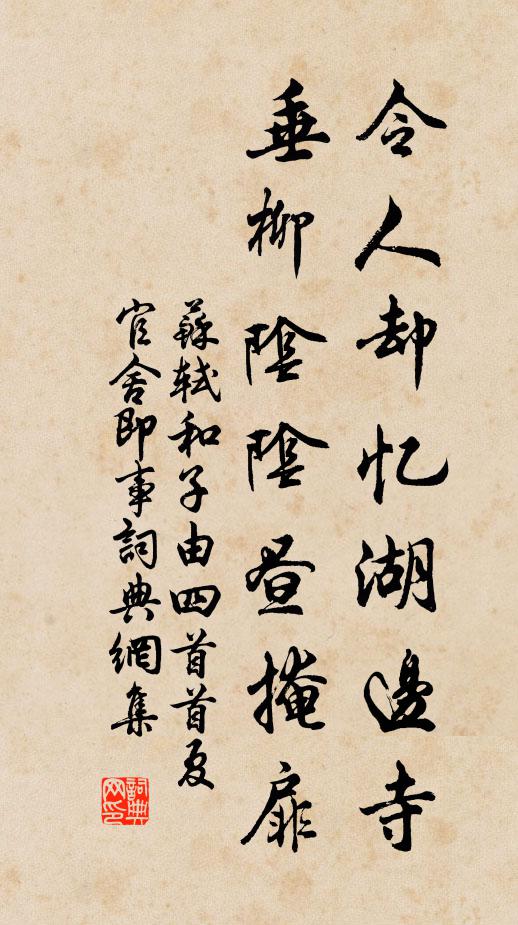 令人却忆湖邊寺
垂柳陰陰昼掩扉
蘇軾和子由四首首夏
官舍即事詞典網集
詞典
网印